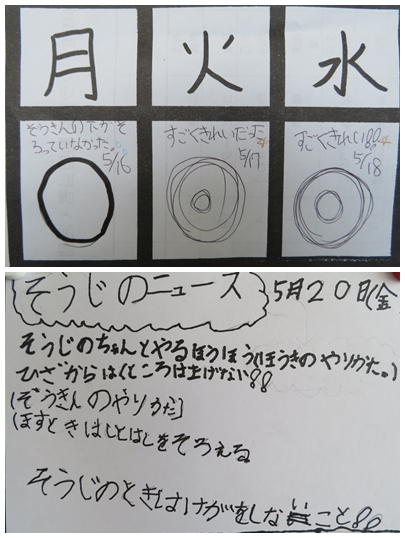 月 火 水
ぞうきんのたがそ
ろっていなかった。
5/16
すごくきれいだった
5/17
すごくきれい!!
5/18
そうじのニュース
5月20日(金
そうじのちゃんとやるほうほう(ほうきのやりかた。)
ひざからはくところは上げない!!
(ぞうきんのやりかた)
(ほすときはしとはしをそろえる
そうじのときはけがをしないこと!!